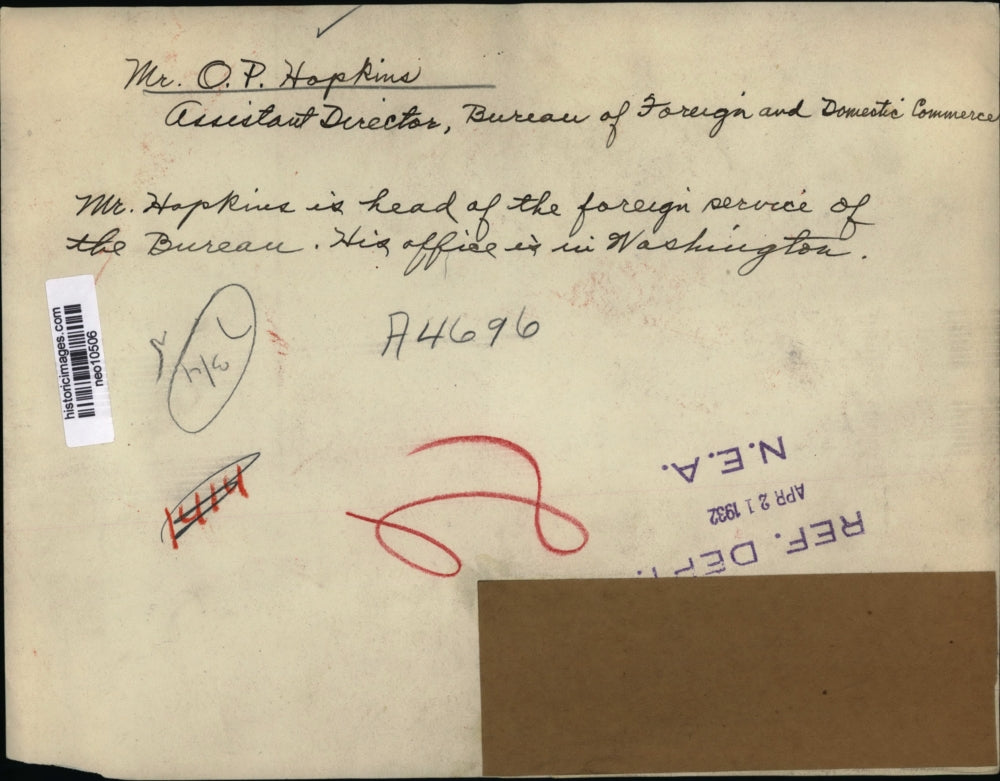 Mr. O. P. Hopkins
Assistant Director, Bureau of Foreign and Domestic Commerce
Mr. Hopkins is head of the foreign service of
the Bureau. His office is in Washington.
historicimages.com
neo10506
A4696
1414
REF. DEPT.
APR 21 1932
N.E.A.